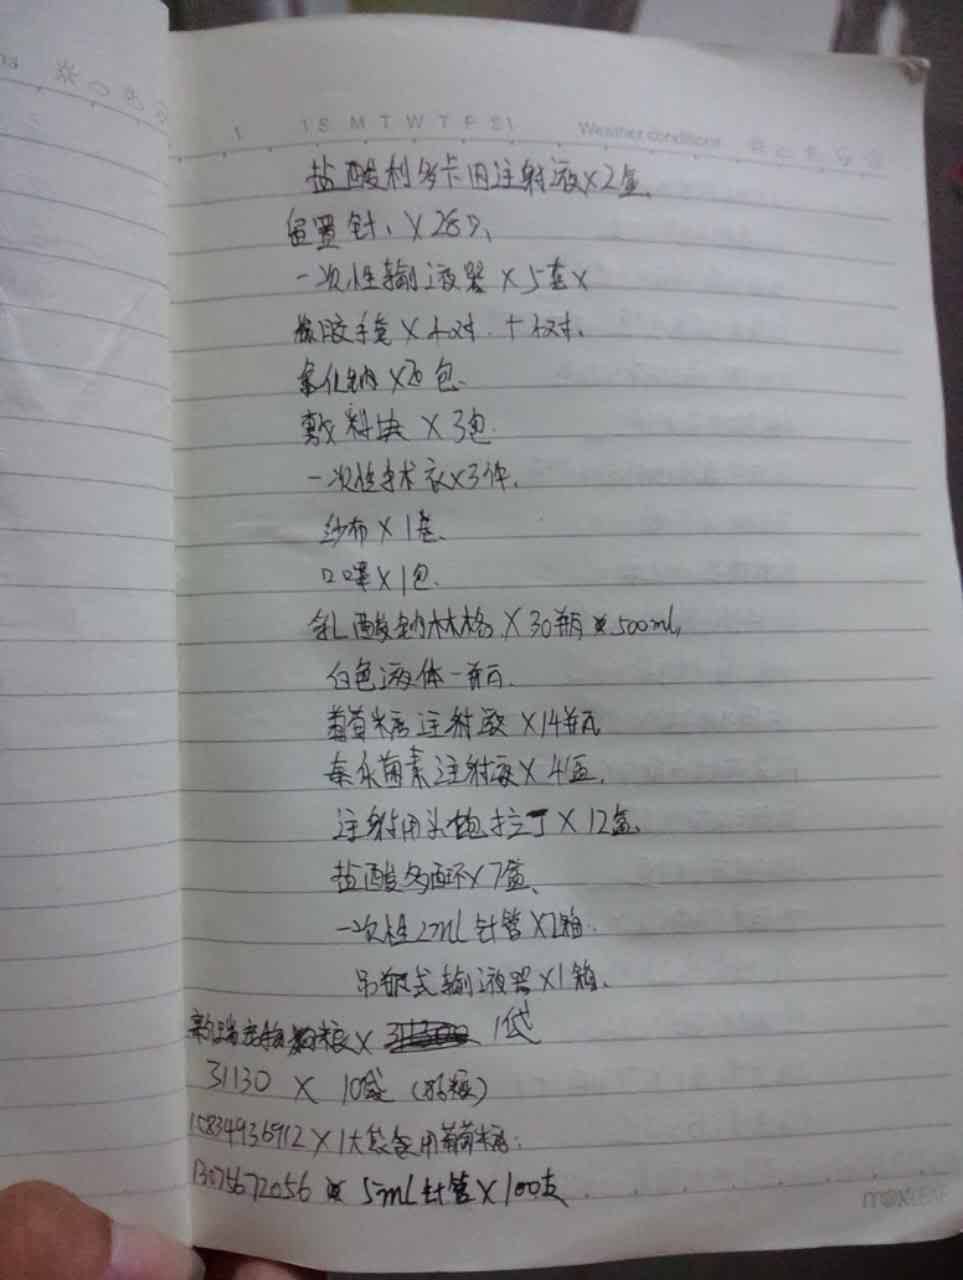 1 S M T W T F S Weather conditions
盐酸利多卡因注射液×2盒、
留置针、×28只、
一次性输液器×5套×
橡胶手套×4对.+4对.
氯化钠×26包.
敷料块×3包.
一次性手术衣×3件.
纱布×1卷.
口罩×1包.
乳酸钠林格×30瓶×500ml,
白色液体一瓶.
葡萄糖注射液×14瓶
氯霉素注射液×4盒.
注射用头孢拉丁×12盒、
盐酸多西环×7盒、
一次性2ml针管×2箱.
吊瓶式输液器×1箱.
×1袋
31130×10袋(猫粮)
15834936912×1大袋食用葡萄糖.
13075672056 5ml针管×100支